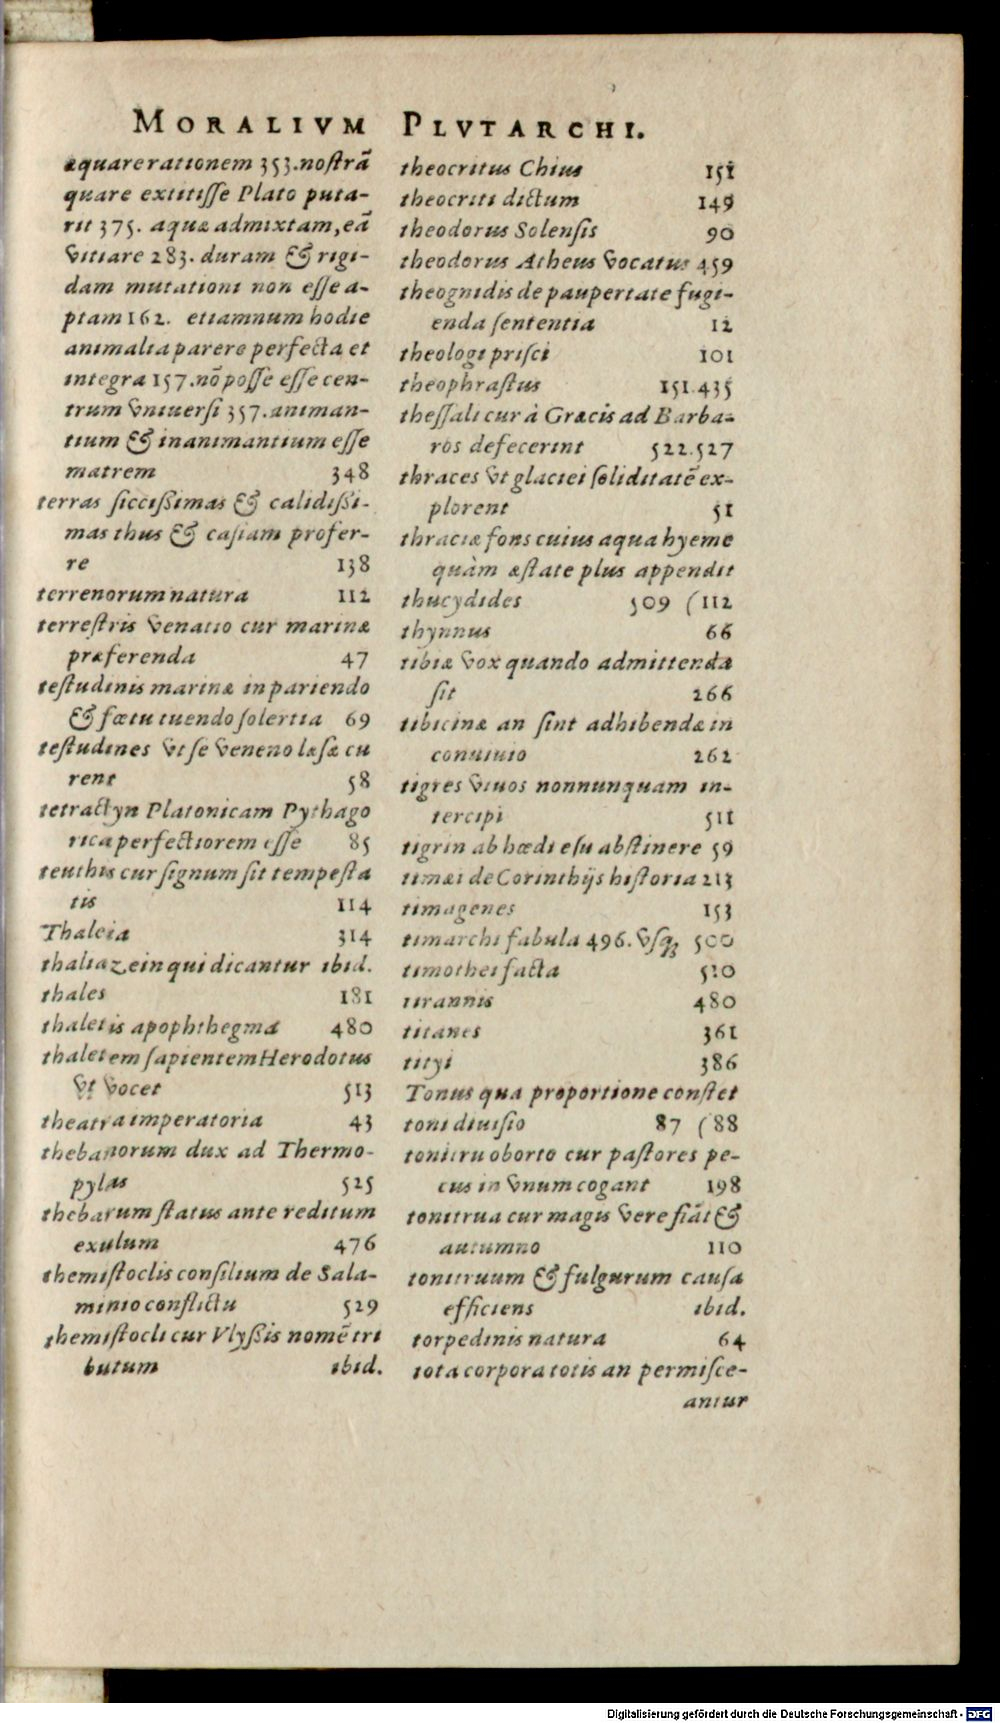 MORALIVM PLVTARCHI.
æquare rationem 353. nostrā
quare extitisse Plato puta-
rit 375. aquæ admixtam, eā
vitiare 283. duram & rigi-
dam mutationi non esse a-
ptam 162. etiamnum hodie
animalia parere perfecta et
integra 157. nō posse esse cen-
trum vniuersi 357. animan-
tium & inanimantium esse
matrem 348
terras siccissimas & calidissi-
mas thus & casiam profer-
re 138
terrenorum natura 112
terrestris venatio cur marinæ
præferenda 47
testudinis marinæ in pariendo
& fœtu tuendo solertia 69
testudines vt se veneno læsæ cu
rent 58
tetractyn Platonicam Pythago
rica perfectiorem esse 85
teuthis cur signum sit tempesta
tis 114
Thaleia 314
thaliazein qui dicantur ibid.
thales 181
thaletis apophthegma 480
thaletem sapientem Herodotus
vt vocet 513
theatra imperatoria 43
thebanorum dux ad Thermo-
pylas 525
thebarum status ante reditum
exulum 476
themistoclis consilium de Sala-
minio conflictu 529
themistocli cur Vlyssis nomē tri
butum ibid.
theocritus Chius 151
theocriti dictum 149
theodorus Solensis 90
theodorus Atheus vocatus 459
theognidis de paupertate fugi-
enda sententia 12
theologi prisci 101
theophrastus 151.435
thessali cur à Græcis ad Barba-
ros defecerint 522.527
thraces vt glaciei soliditatē ex-
plorent 51
thraciæ fons cuius aqua hyeme
quàm æstate plus appendit
thucydides 509 (112
thynnus 66
tibiæ vox quando admittenda
sit 266
tibicinæ an sint adhibendæ in
conuiuio 262
tigres viuos nonnunquam in-
tercipi 511
tigrin ab hœdi esu abstinere 59
timæi de Corinthijs historia 213
timagenes 153
timarchi fabula 496. vsqꝫ 500
timothei facta 510
tirannis 480
titanes 361
tityi 386
Tonus qua proportione constet
toni diuisio 87 (88
tonitru oborto cur pastores pe-
cus in vnum cogant 198
tonitrua cur magis vere fiāt &
autumno 110
tonitruum & fulgurum causa
efficiens ibid.
torpedinis natura 64
tota corpora totis an permisce-
antur
Digitalisierung gefördert durch die Deutsche Forschungsgemeinschaft - DFG